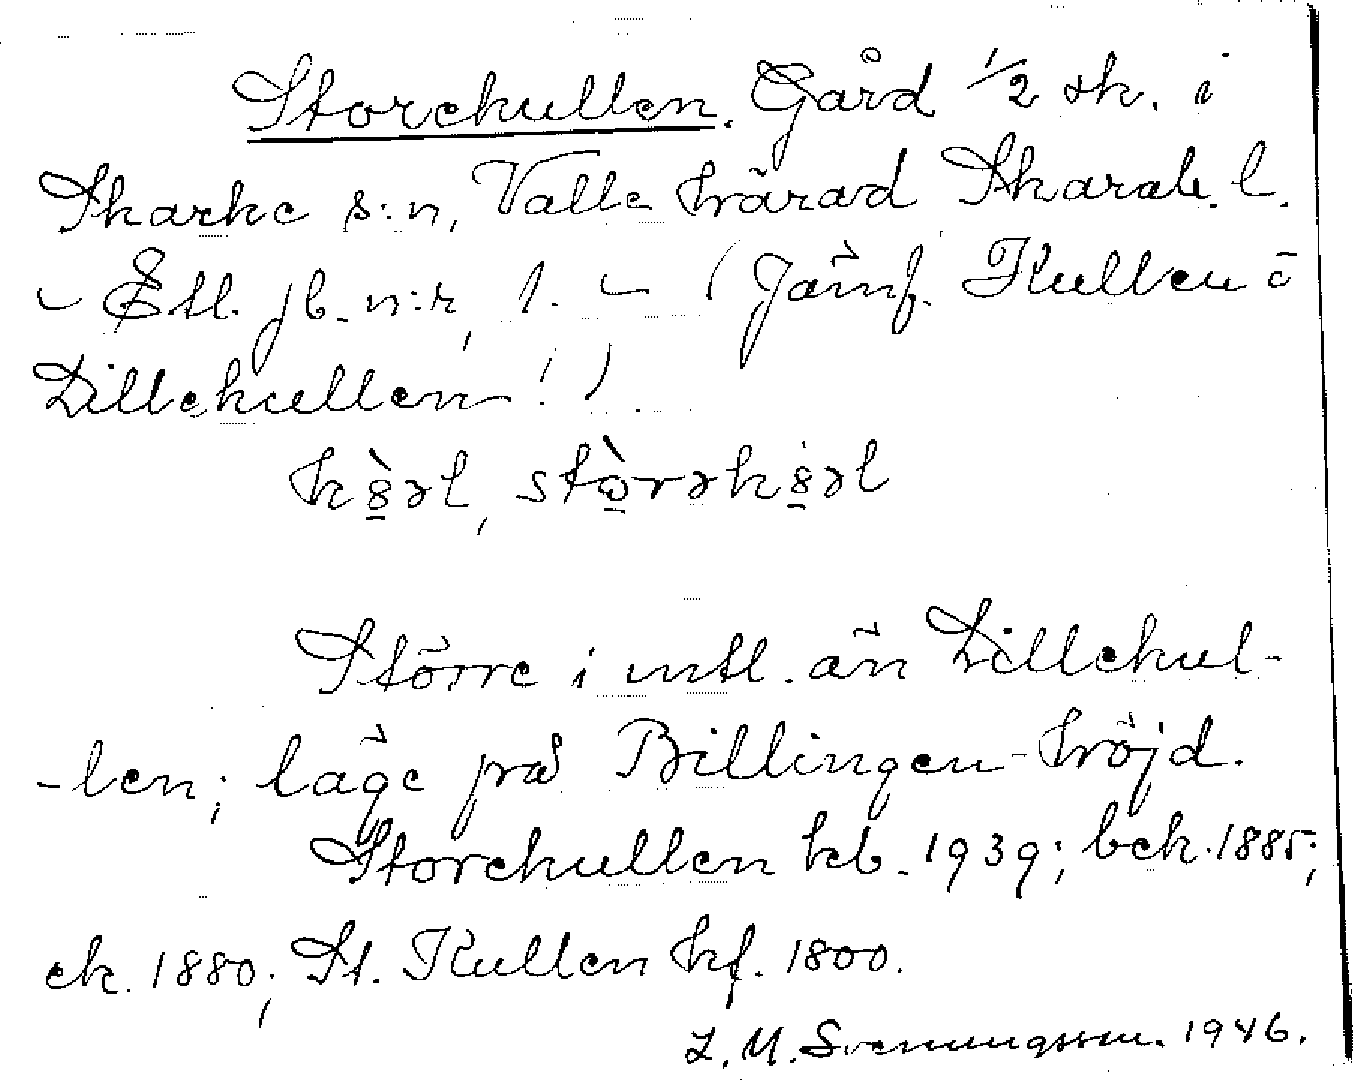 Storekullen. Gård 1/2 sk. i
Skarke s:n, Valle härad Skarab. l.
- Ett. jb. n:r, 1. - (Jämf. Kullen o
Lillekullen!)
Större i mtl. än Lillekul-
-len; läge på Billingen-höjd.
Storekullen kb. 1939; bek. 1885;
ek. 1880; St. Kullen hf. 1800.
L. M. Svenungsson. 1946.